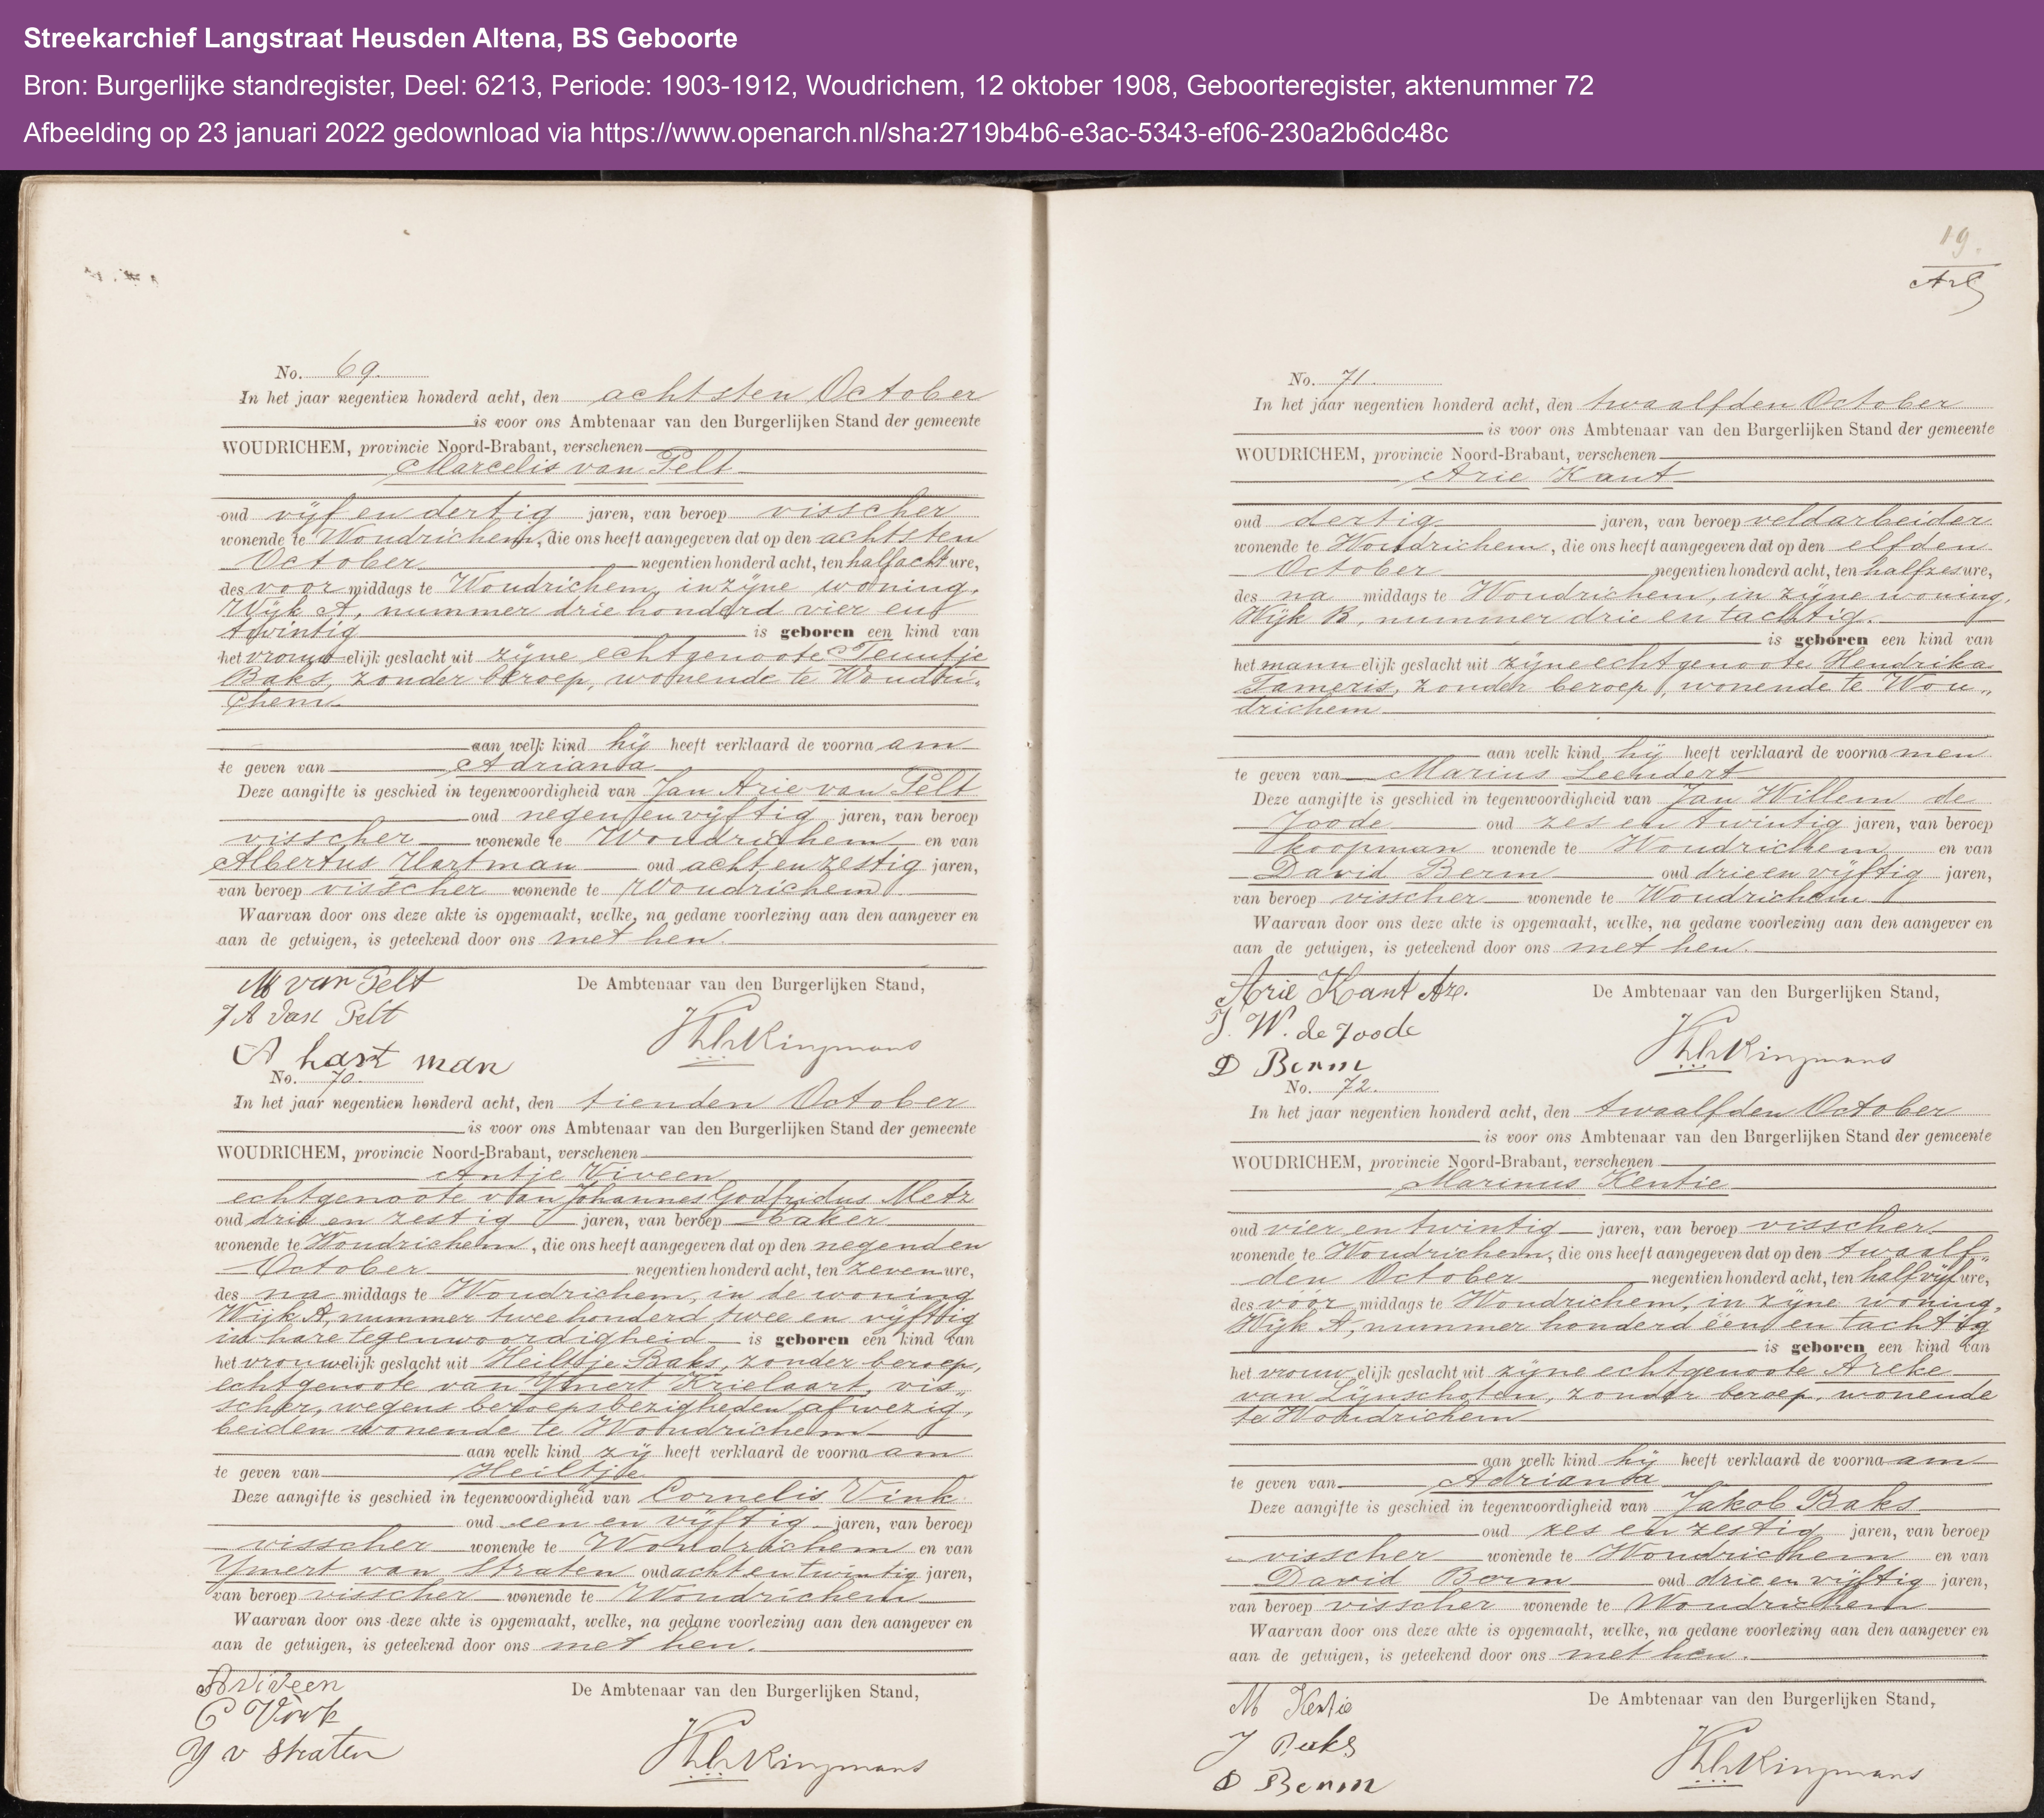 Streekarchief Langstraat Heusden Altena, BS Geboorte
Bron: Burgerlijke standregister, Deel: 6213, Periode: 1903-1912, Woudrichem, 12 oktober 1908, Geboorteregister, aktenummer 72
Afbeelding op 23 januari 2022 gedownload via https://www.openarch.nl/sha:2719b4b6-e3ac-5343-ef06-230a2b6dc48c
No. 69.
In het jaar negentien honderd acht, den achtsten October
is voor ons Ambtenaar van den Burgerlijken Stand der gemeente
WOUDRICHEM, provincie Noord-Brabant, verschenen
Marcelis van Pelt
oud vijf en dertig jaren, van beroep visscher
wonende te Woudrichem, die ons heeft aangegeven dat op den achtsten
October negentien honderd acht, ten half acht ure,
des voor middags te Woudrichem, in zijne woning,
Wijk A, nummer driehonderd vier en
twintig is geboren een kind van
het vrouwelijk geslacht uit zijne echtgenoote Teuntje
Baks, zonder beroep, wonende te Woudri-
chem
aan welk kind hij heeft verklaard de voorna am
te geven van Adriana
Deze aangifte is geschied in tegenwoordigheid van Jan Arie van Pelt
oud negen en vijftig jaren, van beroep
visscher wonende te Woudrichem en van
Albertus Hartman oud acht en zestig jaren,
van beroep visscher wonende te Woudrichem
Waarvan door ons deze akte is opgemaakt, welke, na gedane voorlezing aan den aangever en
aan de getuigen, is geteekend door ons met hen.
M van Pelt
De Ambtenaar van den Burgerlijken Stand,
J A van Pelt
A hart man
No. 70.
In het jaar negentien honderd acht, den tienden October
is voor ons Ambtenaar van den Burgerlijken Stand der gemeente
WOUDRICHEM, provincie Noord-Brabant, verschenen
Antje Viveen
echtgenoote van Johannes Godfridus Metz
oud drie en zestig jaren, van beroep baker
wonende te Woudrichem, die ons heeft aangegeven dat op den negenden
October negentien honderd acht, ten zeven ure,
des na middags te Woudrichem, in de woning
Wijk A, nummer twee honderd twee en vijftig
in hare tegenwoordigheid is geboren een kind van
het vrouwelijk geslacht uit Heiltje Baks, zonder beroep,
echtgenoote van Ymert Krielaart, vis„
scher, wegens beroepsbezigheden afwezig,
beiden wonende te Woudrichem
aan welk kind zij heeft verklaard de voorna am
te geven van Heiltje
Deze aangifte is geschied in tegenwoordigheid van Cornelis Vink
oud een en vijftig jaren, van beroep
visscher wonende te Woudrichem en van
Ymert van Straten oud acht en twintig jaren,
van beroep visscher wonende te Woudrichem
Waarvan door ons deze akte is opgemaakt, welke, na gedane voorlezing aan den aangever en
aan de getuigen, is geteekend door ons met hen.
A Viveen
De Ambtenaar van den Burgerlijken Stand,
C Vink
Y v Straten
19.
No. 71.
In het jaar negentien honderd acht, den twaalfden October
is voor ons Ambtenaar van den Burgerlijken Stand der gemeente
WOUDRICHEM, provincie Noord-Brabant, verschenen
Arie Kant
oud dertig jaren, van beroep veldarbeider
wonende te Woudrichem, die ons heeft aangegeven dat op den elfden
October negentien honderd acht, ten half zes ure,
des na middags te Woudrichem, in zijne woning,
Wijk B, nummer drie en tachtig.
is geboren een kind van
het mannelijk geslacht uit zijne echtgenoote Hendrika
Tameris, zonder beroep, wonende te Wou„
drichem
aan welk kind hij heeft verklaard de voorna men
te geven van Marius Leendert
Deze aangifte is geschied in tegenwoordigheid van Jan Willem de
Joode oud zes en twintig jaren, van beroep
koopman wonende te Woudrichem en van
David Berm oud drie en vijftig jaren,
van beroep visscher wonende te Woudrichem
Waarvan door ons deze akte is opgemaakt, welke, na gedane voorlezing aan den aangever en
aan de getuigen, is geteekend door ons met hen.
Arie Kant Az.
De Ambtenaar van den Burgerlijken Stand,
J. W. de Joode
D Berm
No. 72.
In het jaar negentien honderd acht, den twaalfden October
is voor ons Ambtenaar van den Burgerlijken Stand der gemeente
WOUDRICHEM, provincie Noord-Brabant, verschenen
Marinus Kentie
oud vier en twintig jaren, van beroep visscher
wonende te Woudrichem, die ons heeft aangegeven dat op den twaalf„
den October negentien honderd acht, ten half vijf ure,
des vóór middags te Woudrichem, in zijne woning,
Wijk A, nummer honderd een en tachtig
is geboren een kind van
het vrouwelijk geslacht uit zijne echtgenoote Areke
van Lijnschoten, zonder beroep, wonende
te Woudrichem
aan welk kind hij heeft verklaard de voorna am
te geven van Adriana
Deze aangifte is geschied in tegenwoordigheid van Jakob Baks
oud zes en zestig jaren, van beroep
visscher wonende te Woudrichem en van
David Berm oud drie en vijftig jaren,
van beroep visscher wonende te Woudrichem
Waarvan door ons deze akte is opgemaakt, welke, na gedane voorlezing aan den aangever en
aan de getuigen, is geteekend door ons met hen.
M Kentie
De Ambtenaar van den Burgerlijken Stand,
J Baks
D Berm